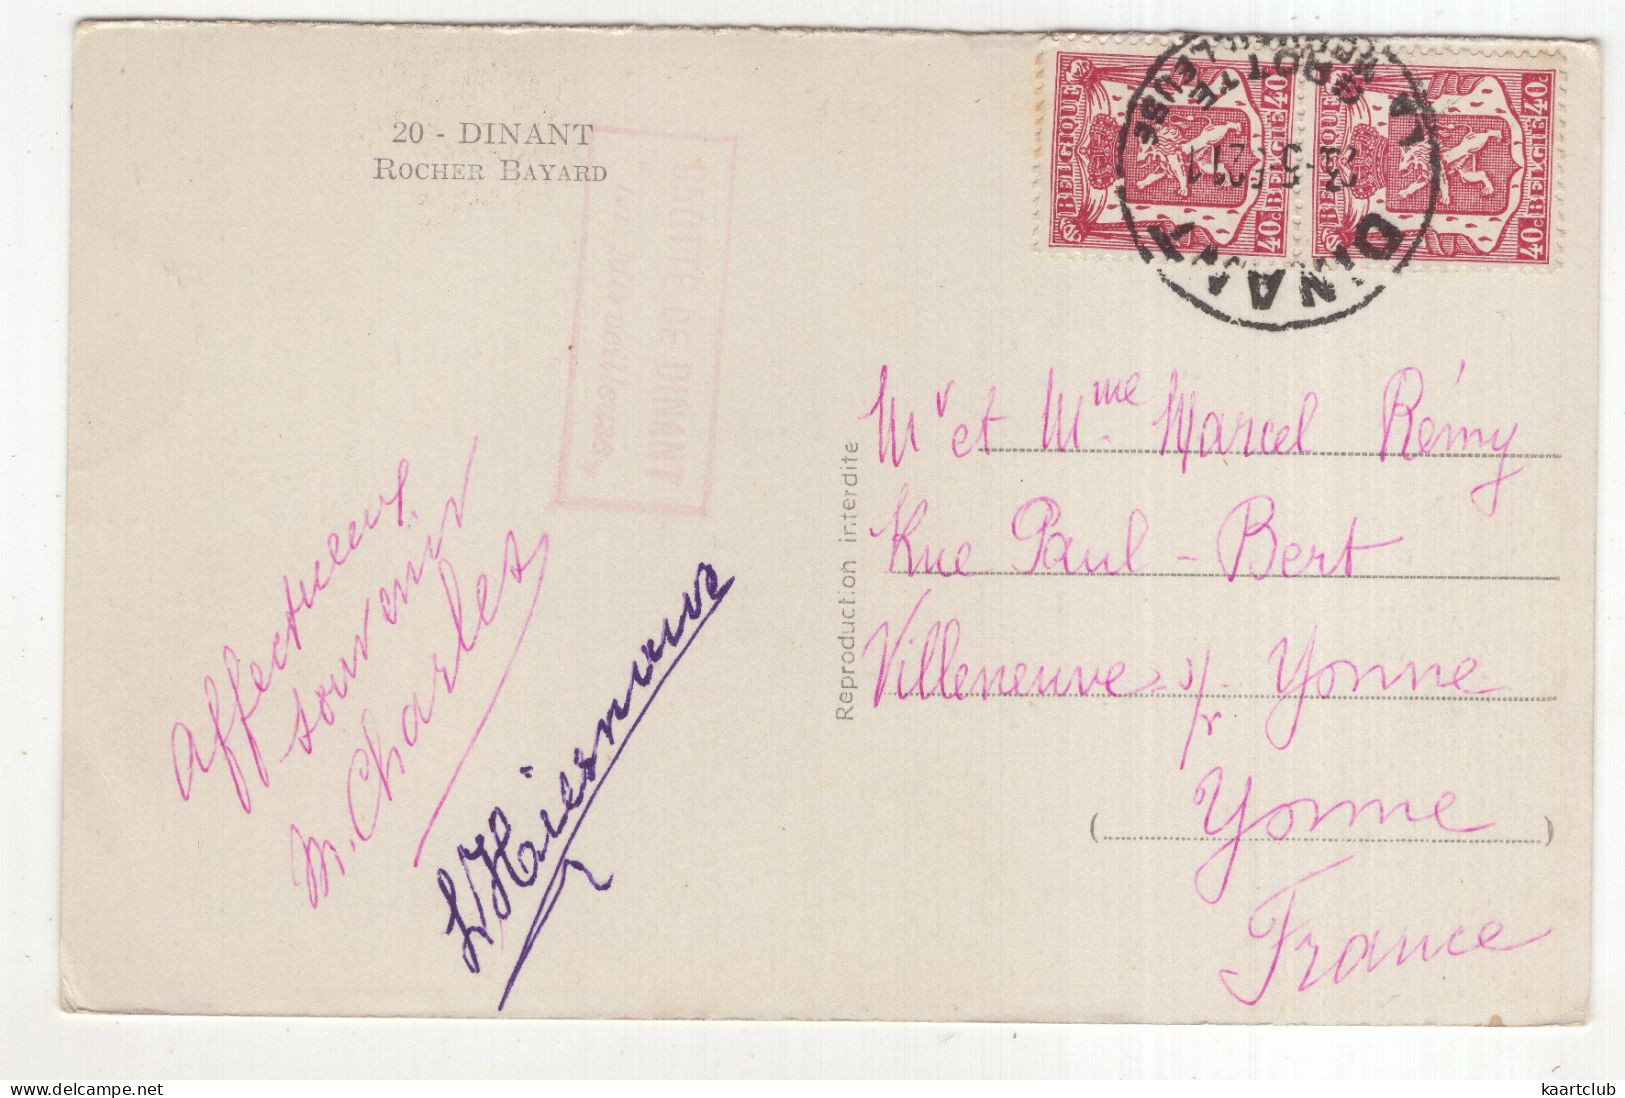 20 - DINANT
ROCHER BAYARD
GROTTE DE DINANT
"La Merveilleuse"
BELGIQUE 40c
40c BELGIE
BELGIQUE 40c
40c BELGIE
DINANT
LA GROTTE
MERVEILLEUSE
Reproduction interdite
Mr et Mme Marcel Rémy
Rue Paul-Bert
Villeneuve s/r Yonne
(Yonne)
France
Affectueux
souvenir
M. Charles
kaartclub